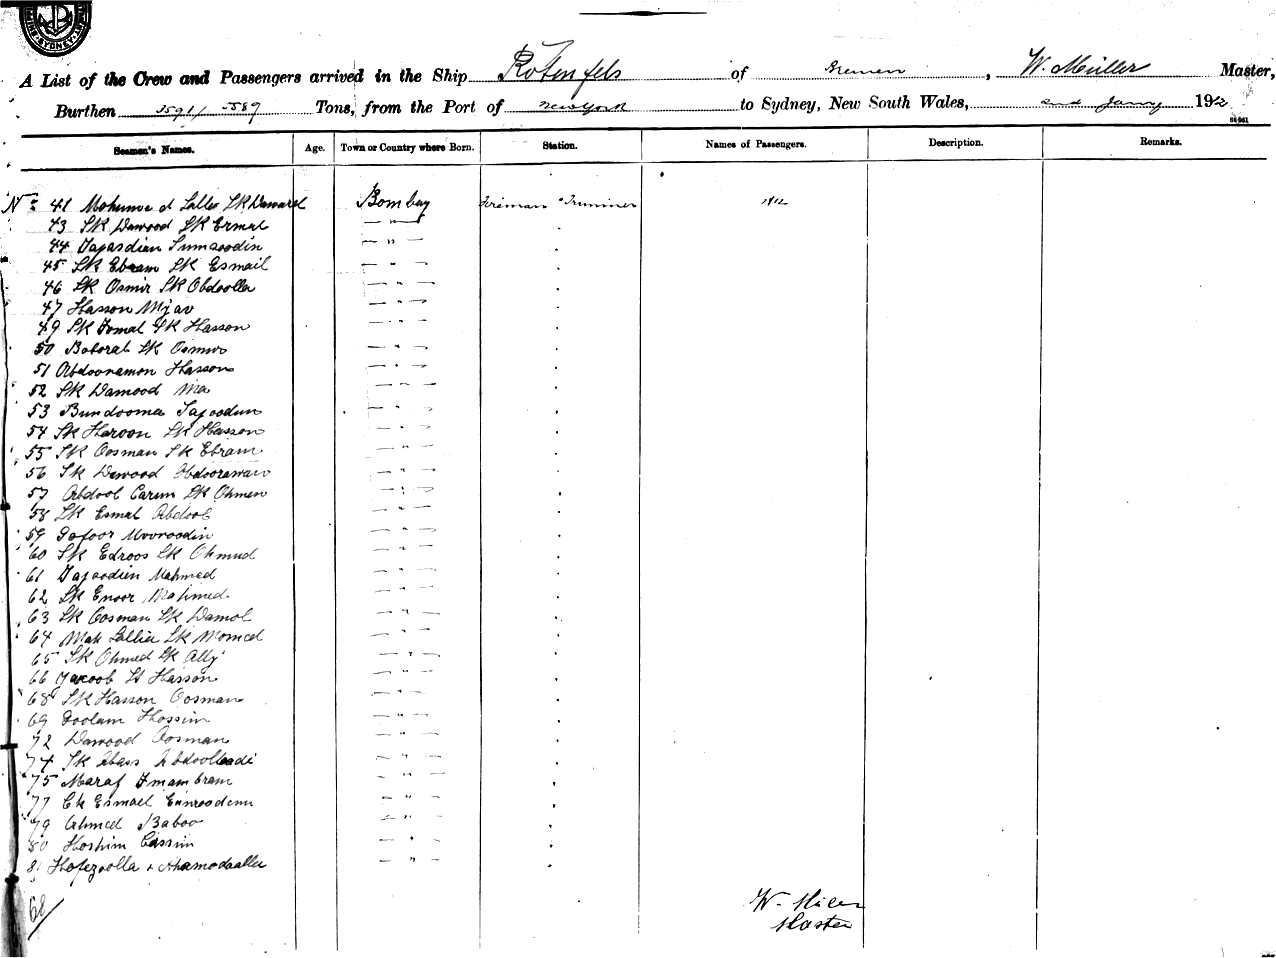 SYDNEY
A List of the Crew and Passengers arrived in the Ship Rotenfels of Bremen, W. Müller Master,
Burthen 5591/5589 Tons, from the Port of New York to Sydney, New South Wales, 2nd Jany 192
Seamen's Names. Age. Town or Country where Born. Station. Names of Passengers. Description. Remarks.
No: 41 Mohumed Sk Dawood Bombay Fireman Trimmer
43 Sk Dawood Sk Esmal - " -
44 Tajasdien - " -
45 Sk Ebram Sk Esmail - " -
46 Sk Osmir Sk Obdoolla - " -
47 Hasson Mijav - " -
49 Sk Sk Hasson - " -
50 Sk - " -
51 Abdooramon Hasson - " -
52 Sk Damood - " -
53 Bundooma Tajoodun - " -
54 Sk Haroon Sk Hasson - " -
55 Sk Oosman Sk Ebram - " -
56 Sk Dawood - " -
57 Abdool Carim Sk - " -
58 Sk Esmal Abdool - " -
59 Gafoor - " -
60 Sk Edroos Sk Ohmud - " -
61 Tajoodien Mahmed - " -
62 Sk Enoor Mahmed - " -
63 Sk Oosman Sk Damol - " -
64 Mak Sallia Sk Momed - " -
65 Sk Ohmed Sk Ally - " -
66 Yacoob Hasson - " -
68 Sk Hasson Oosman - " -
69 Goolam Hossim - " -
72 Dawood Oosman - " -
74 Sk Abass - " -
75 Maraf Imambram - " -
77 Esmael - " -
79 Ahmed Baboo - " -
80 Hoshim Cassim - " -
81 Hofezoolla - " -
W. Müller
Master